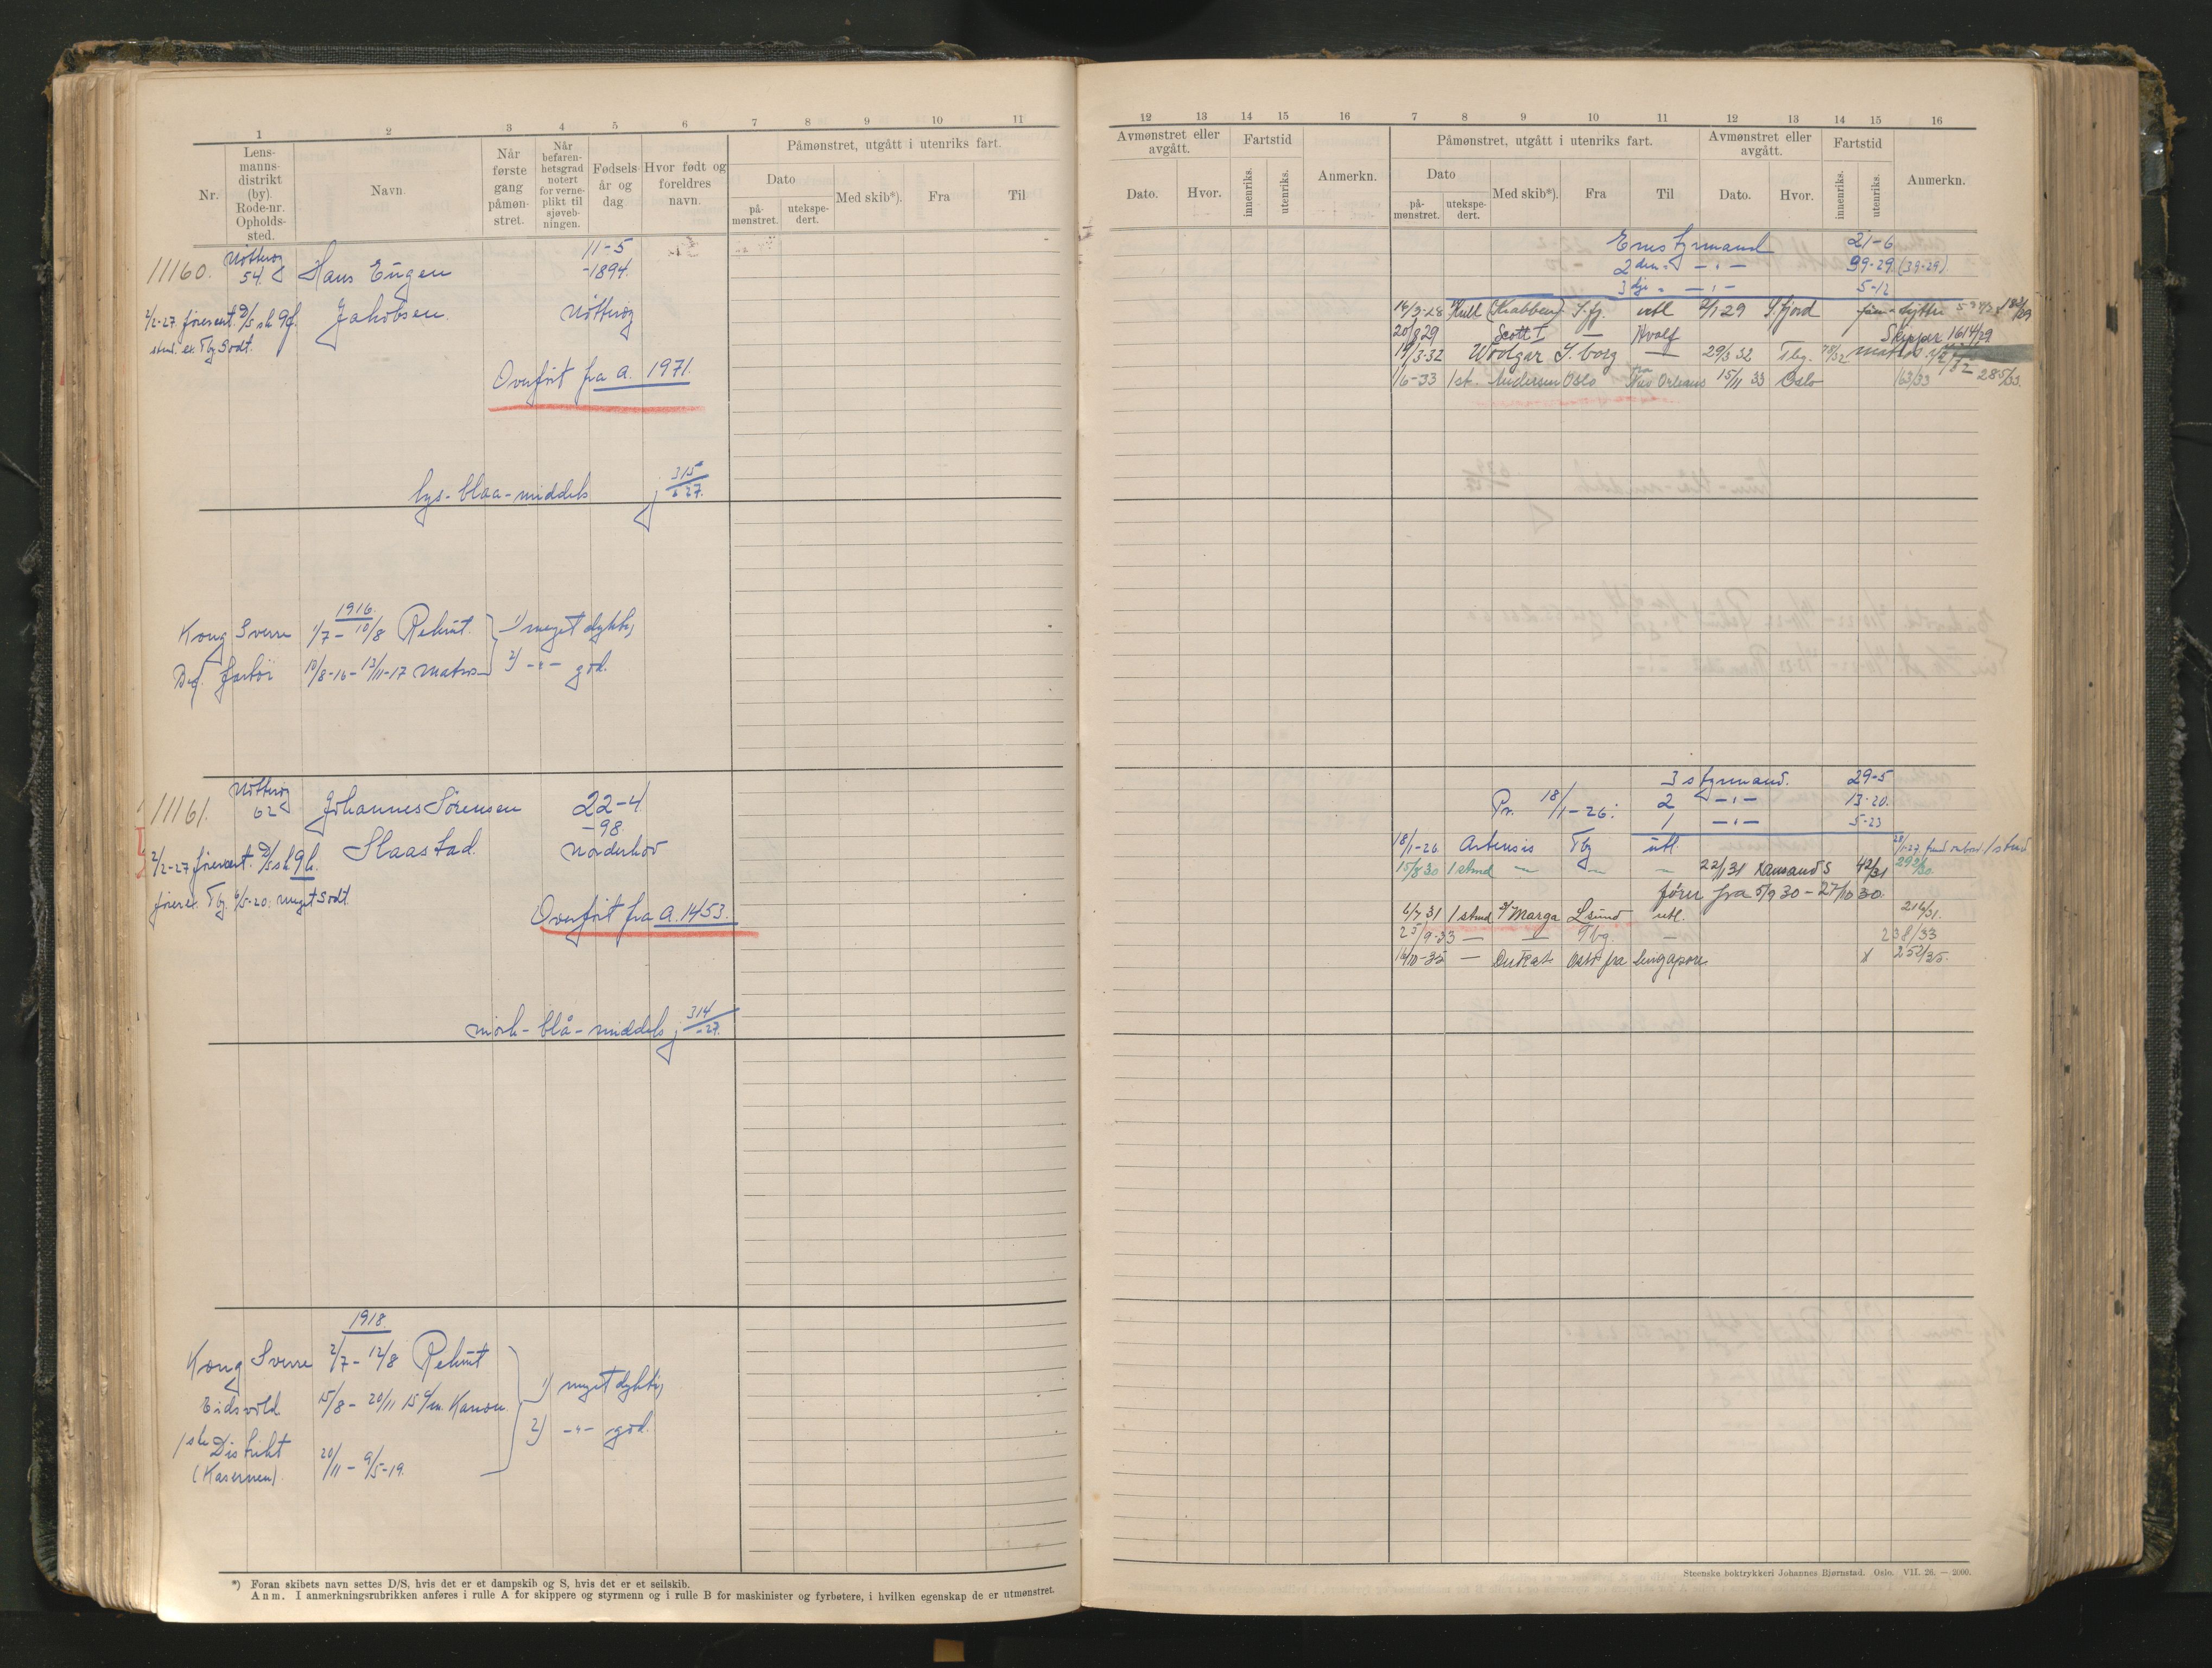 1 2 3 4 5 6 7 8 9 10 11
Nr.
Lens-
manns-
distrikt
(by).
Rode-nr.
Opholds-
sted.
Navn.
Når
første
gang
påmøn-
stret.
Når
befaren-
hetsgrad
notert
for verne-
plikt til
sjøveb-
ningen.
Fødsels-
år og
dag
Hvor født og
foreldres
navn.
Påmønstret, utgått i utenriks fart.
Dato
på-
mønstret.
utekspe-
dert.
Med skib*).
Fra
Til
11160.
Nøtterøy
54.
Hans Eugen
Jakobsen.
11-5
-1894.
Nøtterøy
Overført fra A. 1971.
lys-blaa-middels
315/-27.
1916.
Kong Sverre 1/7-10/8 Rekrut.
10/8-16-13/11-17 matros
1) meget dyktig
2) -"- god.
11161.
Nøtterøy
62
Johannes Sørensen
Haastad.
22-4
-98.
Norderhov
Overført fra A. 1453.
mørk-blå-middels
314/-27.
1918.
Kong Sverre 2/7-12/8 Rekrut
Eidsvold. 15/8-20/11 15 c/m. Kanon.
1ste Distrikt
(Kasernen). 20/11-9/5-19.
1) meget dyktig
2) -"- god.
*) Foran skibets navn settes D/S, hvis det er et dampskib og S, hvis det er et seilskib.
Anm. I anmerkningsrubrikken anføres i rulle A for skippere og styrmenn og i rulle B for maskinister og fyrbøtere, i hvilken egenskap de er utmønstret.
12 13 14 15 16 7 8 9 10 11 12 13 14 15 16
Avmønstret eller
avgått.
Dato.
Hvor.
Fartstid
innenriks.
utenriks.
Anmerkn.
Påmønstret, utgått i utenriks fart.
Dato
på-
mønstret.
utekspe-
dert.
Med skib*).
Fra
Til
Avmønstret eller
avgått.
Dato.
Hvor.
Fartstid
innenriks.
utenriks.
Anmerkn.
Enestyrmand 21-6
2den -"- 99-29. (39-29).
3dje -"- 5-12
16/3-28 (Krabben) S.fj. utl 2/1-29 S.fjord
20/8 29 Scott I — Hvalf Skipper 1614/29
19/3-32 Woolgar S.borg — 29/3 32 Tbg.
1/6-33 1st. Andersen Oslo fra New Orleans 15/11 33 Oslo 163/33 285/33.
3 styrmand. 29-5
Pr. 18/1-26: 2 -"- 13-20.
1 -"- 5-23
18/1-26 Artensis Tbg utl
15/8 30 1 stmd — — — 22/1 31 Kansand S 42/31 292/30.
fører fra 5/9 30-27/10 30.
6/7 31 1 stmd Marga L.sund utl. 216/31.
25/9-33 — — Tbg. — 238/33
16/10-35 — Dukat Oslo fra Singapore x 252/35.
Steenske boktrykkeri Johannes Bjørnstad. Oslo. VII. 26. — 2000.